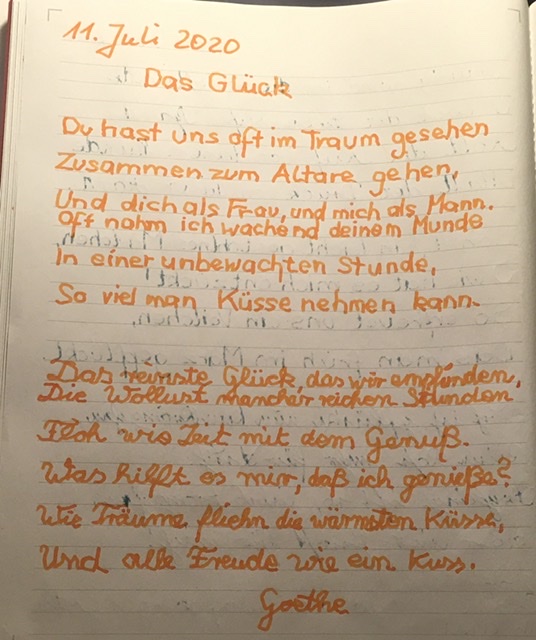 11. Juli 2020
Das Glück
Du hast uns oft im Traum gesehen
Zusammen zum Altare gehen,
Und dich als Frau, und mich als Mann.
Oft nahm ich wachend deinem Munde
In einer unbewachten Stunde,
So viel man Küsse nehmen kann.
Das reinste Glück, das wir empfunden,
Die Wollust mancher reichen Stunden
Floh wie Zeit mit dem Genuß.
Was hilft es mir, daß ich genieße?
Wie Träume fliehn die wärmsten Küsse,
Und alle Freude wie ein Kuss.
Goethe